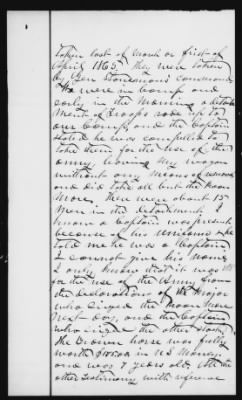 taken last of March or first of
April 1865. They were taken
by Gen Stonemans command
We were in Camp and
early in the Morning a detach
ment of troops rode up to
our Camp, and the Captain
stated he was compelled to
take them for the use of the
army, leaving my wagon
without any means of
and did take all but the
Mare. There were about 15
Men in the detachment. I
know a Captain was present
because of his uniform & he
told me he was a Captain
I cannot give his name
I only know that it was
for the use of the Army from
the declarations of the Major
who the Mare
next day, and the Captain
who the other stock.
The Brown horse was fully
worth $ in U.S. Money
and was 7 years old, the
other testimony with reference